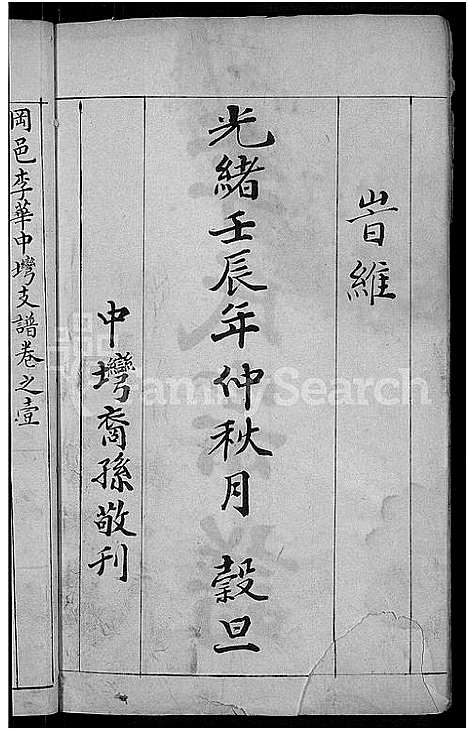 旹維
光緒壬辰年仲秋月 穀旦
中塆裔孫敬刊
岡邑李華中塆支譜卷之壹
FamilySearch